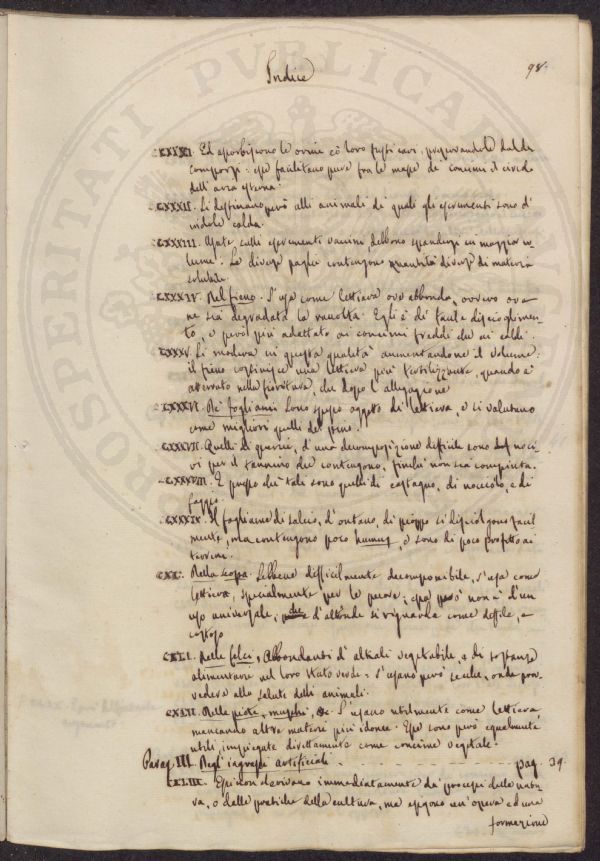 98.
Indice
CXXXI. Ed assorbiscono le orine co' loro fusti cavi, preservandole dalla
composiz: esse facilitano pure fra le masse de' concimi il circolo
dell'aria esterna.
CXXXII. Si destinano però alli animali di quali gli escrementi sono d'
indole calda.
CXXXIII. Usate sulli escrementi vaccini debbono spandersi in maggior vo-
lume. Le diverse paglie contengono quantità diverse di materia
solubile.
CXXXIV. Del fieno. S'usa come lettiera ove abbonda, ovvero ove
ne sia degradata la raccolta. Egli è di facile discioglimen-
to, e perciò più adattato ai concimi freddi che ai caldi.
CXXXV. Si modera in questa qualità aumentandone il volume:
il fieno costituisce una lettiera più fertilizzante, quando è
atterrato nella fioritura, che dopo l'allegazione
CXXXVI. De' fogliami. Sono spesso oggetto di lettiera, e si valutano
come migliori quelli del pino.
CXXXVII. Quelli di quercie, d'una decomposizione difficile sono noci-
vi per il tannino che contengono, finché non sia compiuta.
CXXXVIII. E presso che tali sono quelli di castagno, di nocciolo, e di
faggio.
CXXXIX. Il fogliame di salcio, d'ontano, di pioppo si disciolgono facil
mente, ma contengono poco humus, e sono di poco profitto ai
terreni.
CXL. Della scopa. Sebbene difficilmente decomponibile, s'usa come
lettiera, specialmente per le pecore; essa però non è d'un
uso universale; d'altronde si riguarda come debile, e
costoso
CXLI. Delle felci, Abbondanti d'alkali vegetabile, e di sostanze
alimentarie nel loro stato verde = s'usano però secche, onde prov-
vedere alla salute delli animali.
CXLII. Delle piote, muschi, &c. S'usano utilmente come lettiera,
mancando altre materie più idonee. Esse sono però egualmente
utili, impiegate direttamente come concime vegetale.
Parag. III. Degl'ingrassi artificiali - - - - - - - pag. 39.
CXLIII. Essi non derivano immediatamente da' processi della natu-
ra, o dalle pratiche della cultura, ma esigono un'opera ed una
formazione
PROSPERITATI PUBLICAE